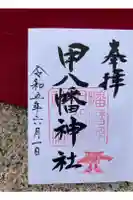 奉拝
甲八幡神社
令和五年六月一日